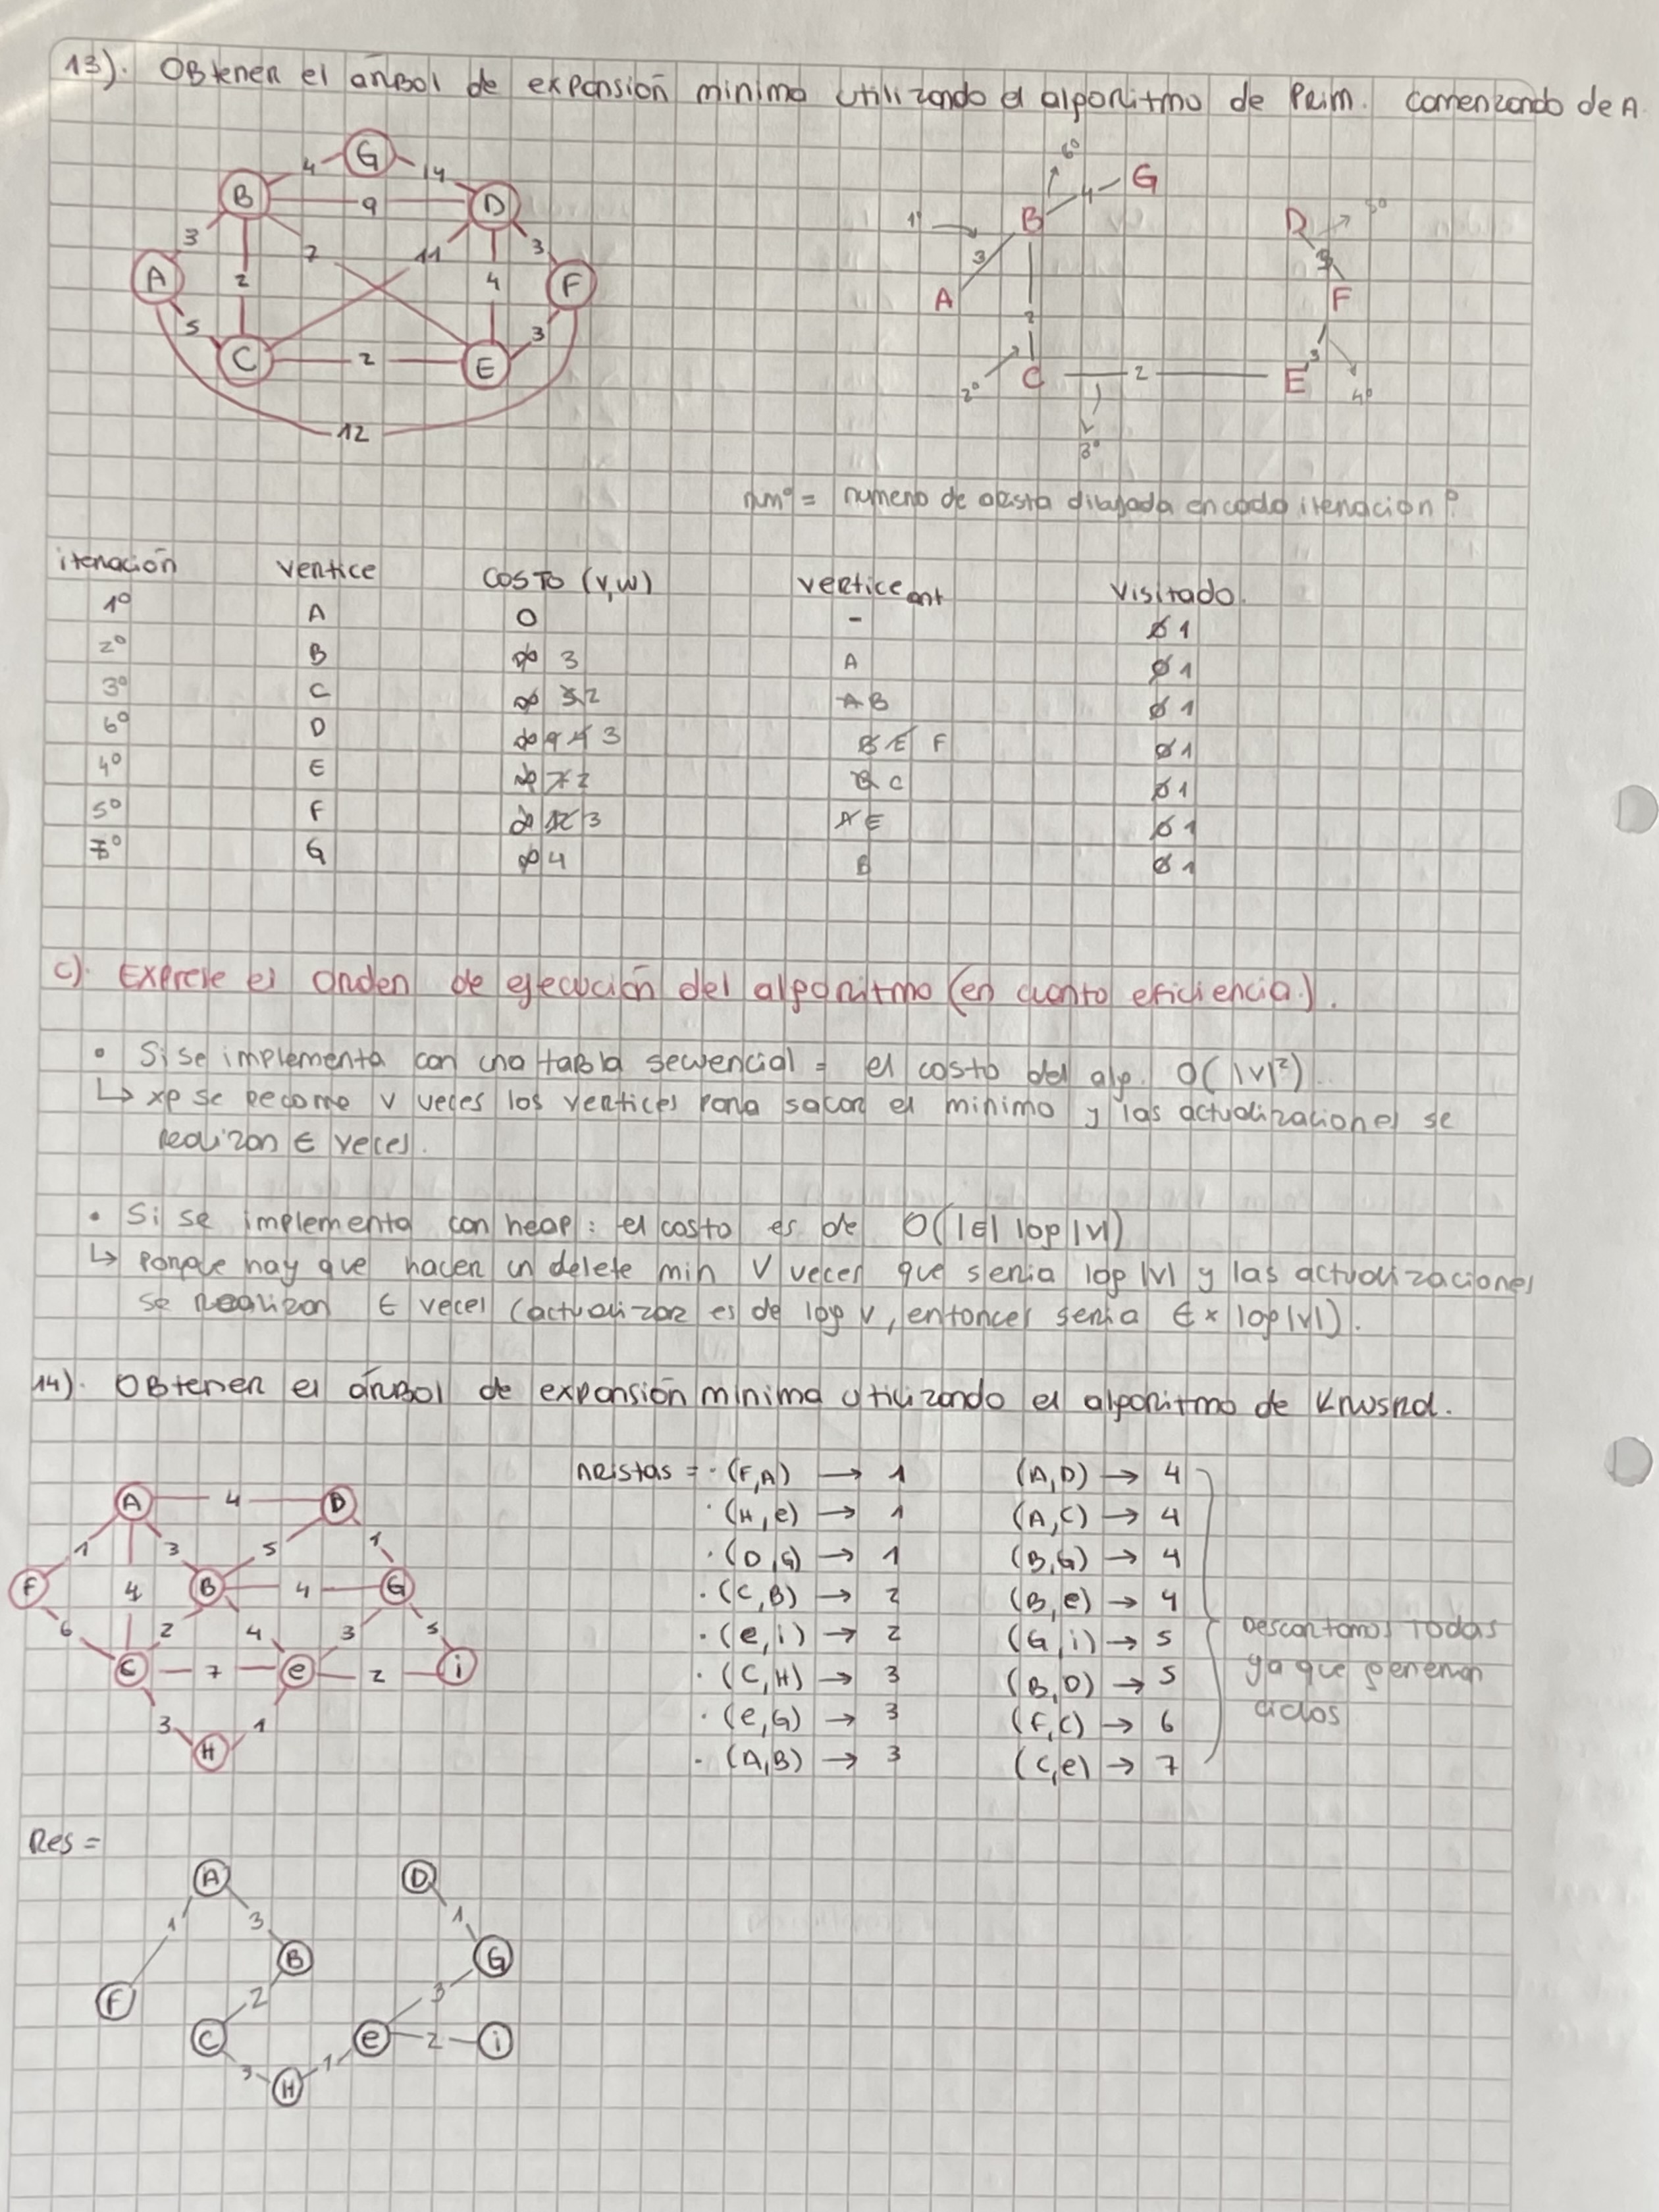 13). Obtener el arbol de expansión minima utilizando el algoritmo de Prim. Comenzando de A.
G
4 14
B 9 D
3 7 11 3
A 2 4 F
5 3
C 2 E
12
6º
4 G
1º B D 5º
3 3
A F
2 3
2º C 2 E 4º
3º
numº = numero de arista dibujada en cada iteración
iteración vertice costo (v,w) vertice ant visitado
1º A 0 - 0 1
2º B ∞ 3 A 0 1
3º C ∞ 5 2 A B 0 1
6º D ∞ 9 4 3 B E F 0 1
4º E ∞ 7 2 B C 0 1
5º F ∞ 12 3 A E 0 1
7º G ∞ 4 B 0 1
c). Exprese el orden de ejecución del algoritmo (en cuanto eficiencia).
• Si se implementa con una tabla secuencial = el costo del alg. O(|V|²).
↳ xq se recorre V veces los vertices para sacar el minimo y las actualizaciones se
realizan E veces.
• Si se implementa con heap: el costo es de O(|E| log |V|)
↳ porque hay que hacer un delete min V veces que seria log |V| y las actualizaciones
se realizan E veces (actualizar es de log V, entonces seria E x log |V|).
14). Obtener el árbol de expansión minima utilizando el algoritmo de Kruskal.
Aristas = · (F,A) → 1 (A,D) → 4
· (H,e) → 1 (A,C) → 4
· (D,G) → 1 (B,G) → 4
· (C,B) → 2 (B,e) → 4
· (e,i) → 2 (G,i) → 5
· (C,H) → 3 (B,D) → 5
· (e,G) → 3 (F,C) → 6
· (A,B) → 3 (C,e) → 7
Descartamos todas
ya que generan
ciclos
A 4 D
1 3 5 1
F 4 B 4 G
6 2 4 3 5
C 7 e 2 i
3 1
H
Res =
A D
1 3 1
B G
F 2 3
C e 2 i
3 1
H